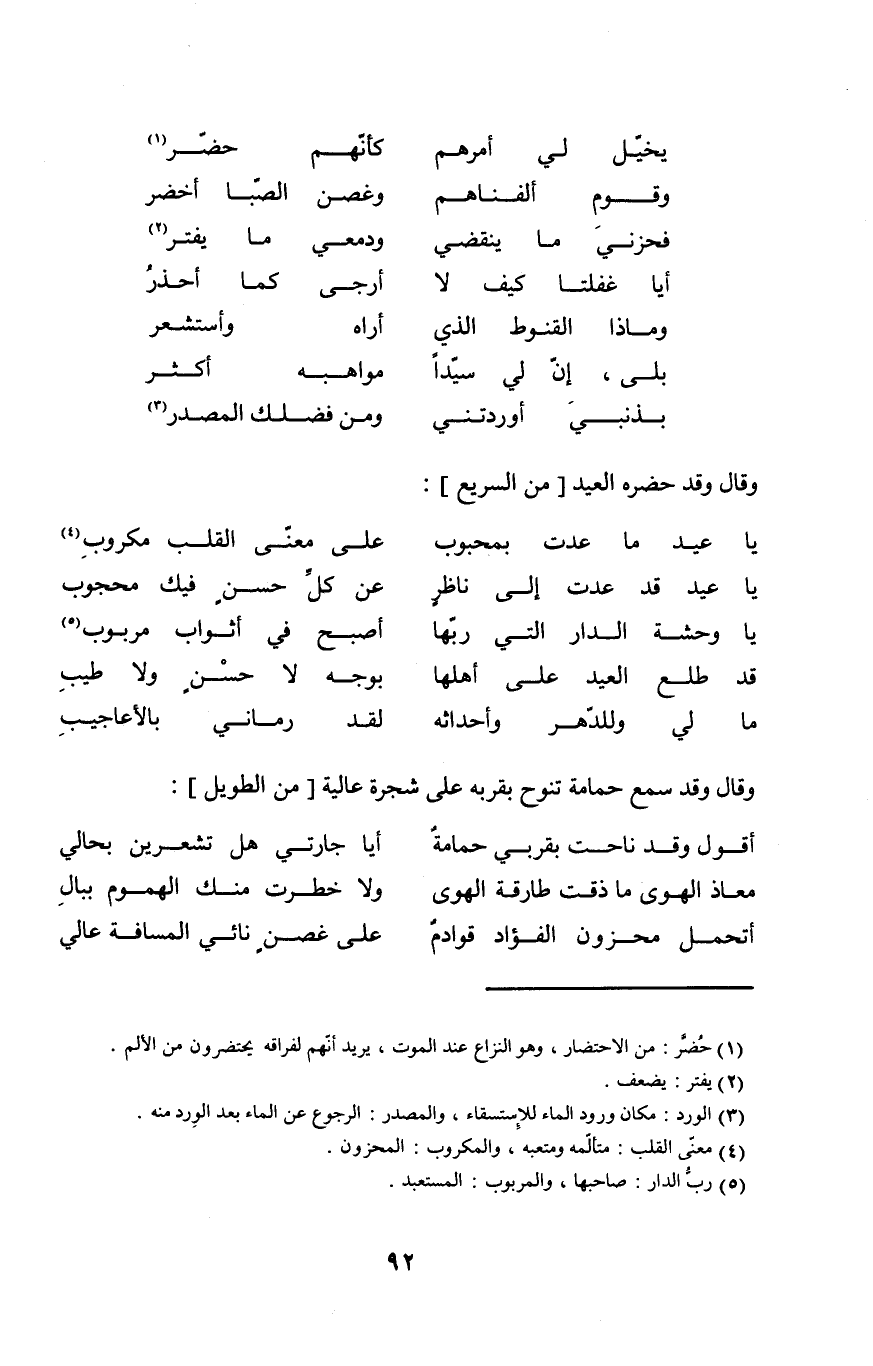 يخيّل لي أمرهم كأنّهم حضّر(١)
وقوم ألفناهم وغصن الصّبا أخضر
فحزنيَ ما ينقضي ودمعي ما يفتر(٢)
أيا غفلتا كيف لا أرجى كما أحذرُ
وماذا القنوط الذي أراه وأستشعر
بلى ، إنّ لي سيّداً مواهبه أكثر
بذنبيَ أوردتني ومن فضلك المصدر(٣)
وقال وقد حضره العيد [ من السريع ] :
يا عيد ما عدت بمحبوب على معنّى القلب مكروبِ(٤)
يا عيد قد عدت إلى ناظرٍ عن كلِّ حسنٍ فيك محجوب
يا وحشة الدار التي ربّها أصبح في أثواب مربوب(٥)
قد طلع العيد على أهلها بوجه لا حسْنٍ ولا طيبِ
ما لي وللدّهر وأحداثه لقد رماني بالأعاجيبِ
وقال وقد سمع حمامة تنوح بقربه على شجرة عالية [ من الطويل ] :
أقول وقد ناحت بقربي حمامةٌ أيا جارتي هل تشعرين بحالي
معاذ الهوى ما ذقت طارقة الهوى ولا خطرت منك الهموم ببالِ
أتحمل محزون الفؤاد قوادمٌ على غصنٍ نائي المسافة عالي
(١) حُضَّر : من الاحتضار ، وهو النزاع عند الموت ، يريد أنّهم لفراقه يحتضرون من الألم .
(٢) يفتر : يضعف .
(٣) الورد : مكان ورود الماء للإستسقاء ، والمصدر : الرجوع عن الماء بعد الورد منه .
(٤) معنّى القلب : متألّمه ومتعبه ، والمكروب : المحزون .
(٥) ربُّ الدار : صاحبها ، والمربوب : المستعبد .
٩٢